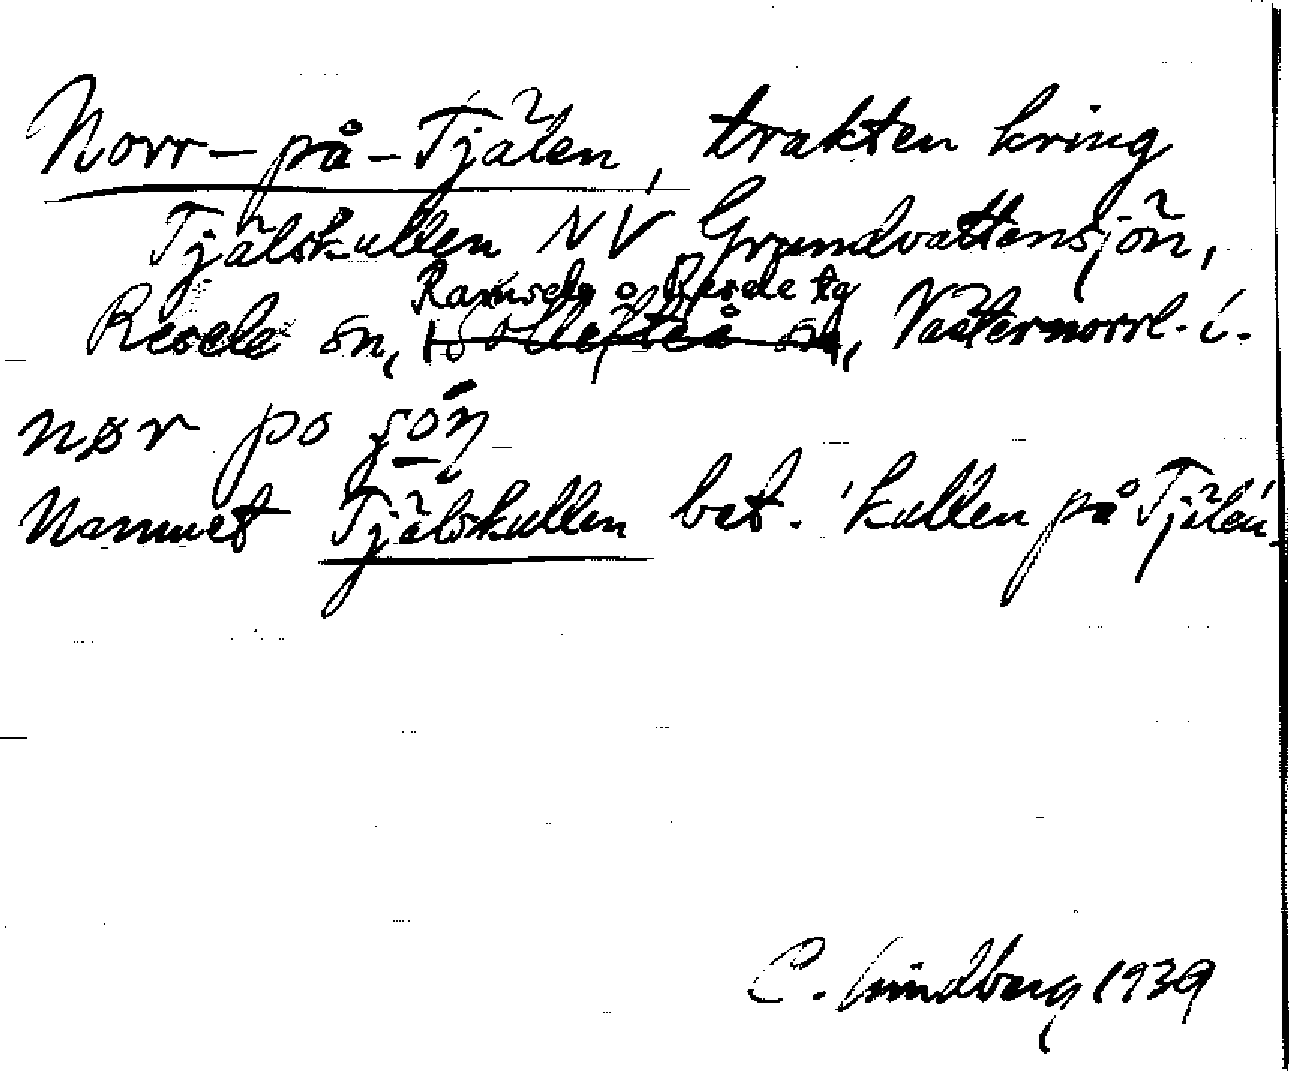 Norr-på-Tjälen, trakten kring
Tjälskullen NV Grundvattensjön,
Ramsele o Resele tg
Resele sn, Västernorrl. l.
nør po
Namnet Tjälskullen bet. 'kullen på Tjälen'.
C. Lindberg 1939